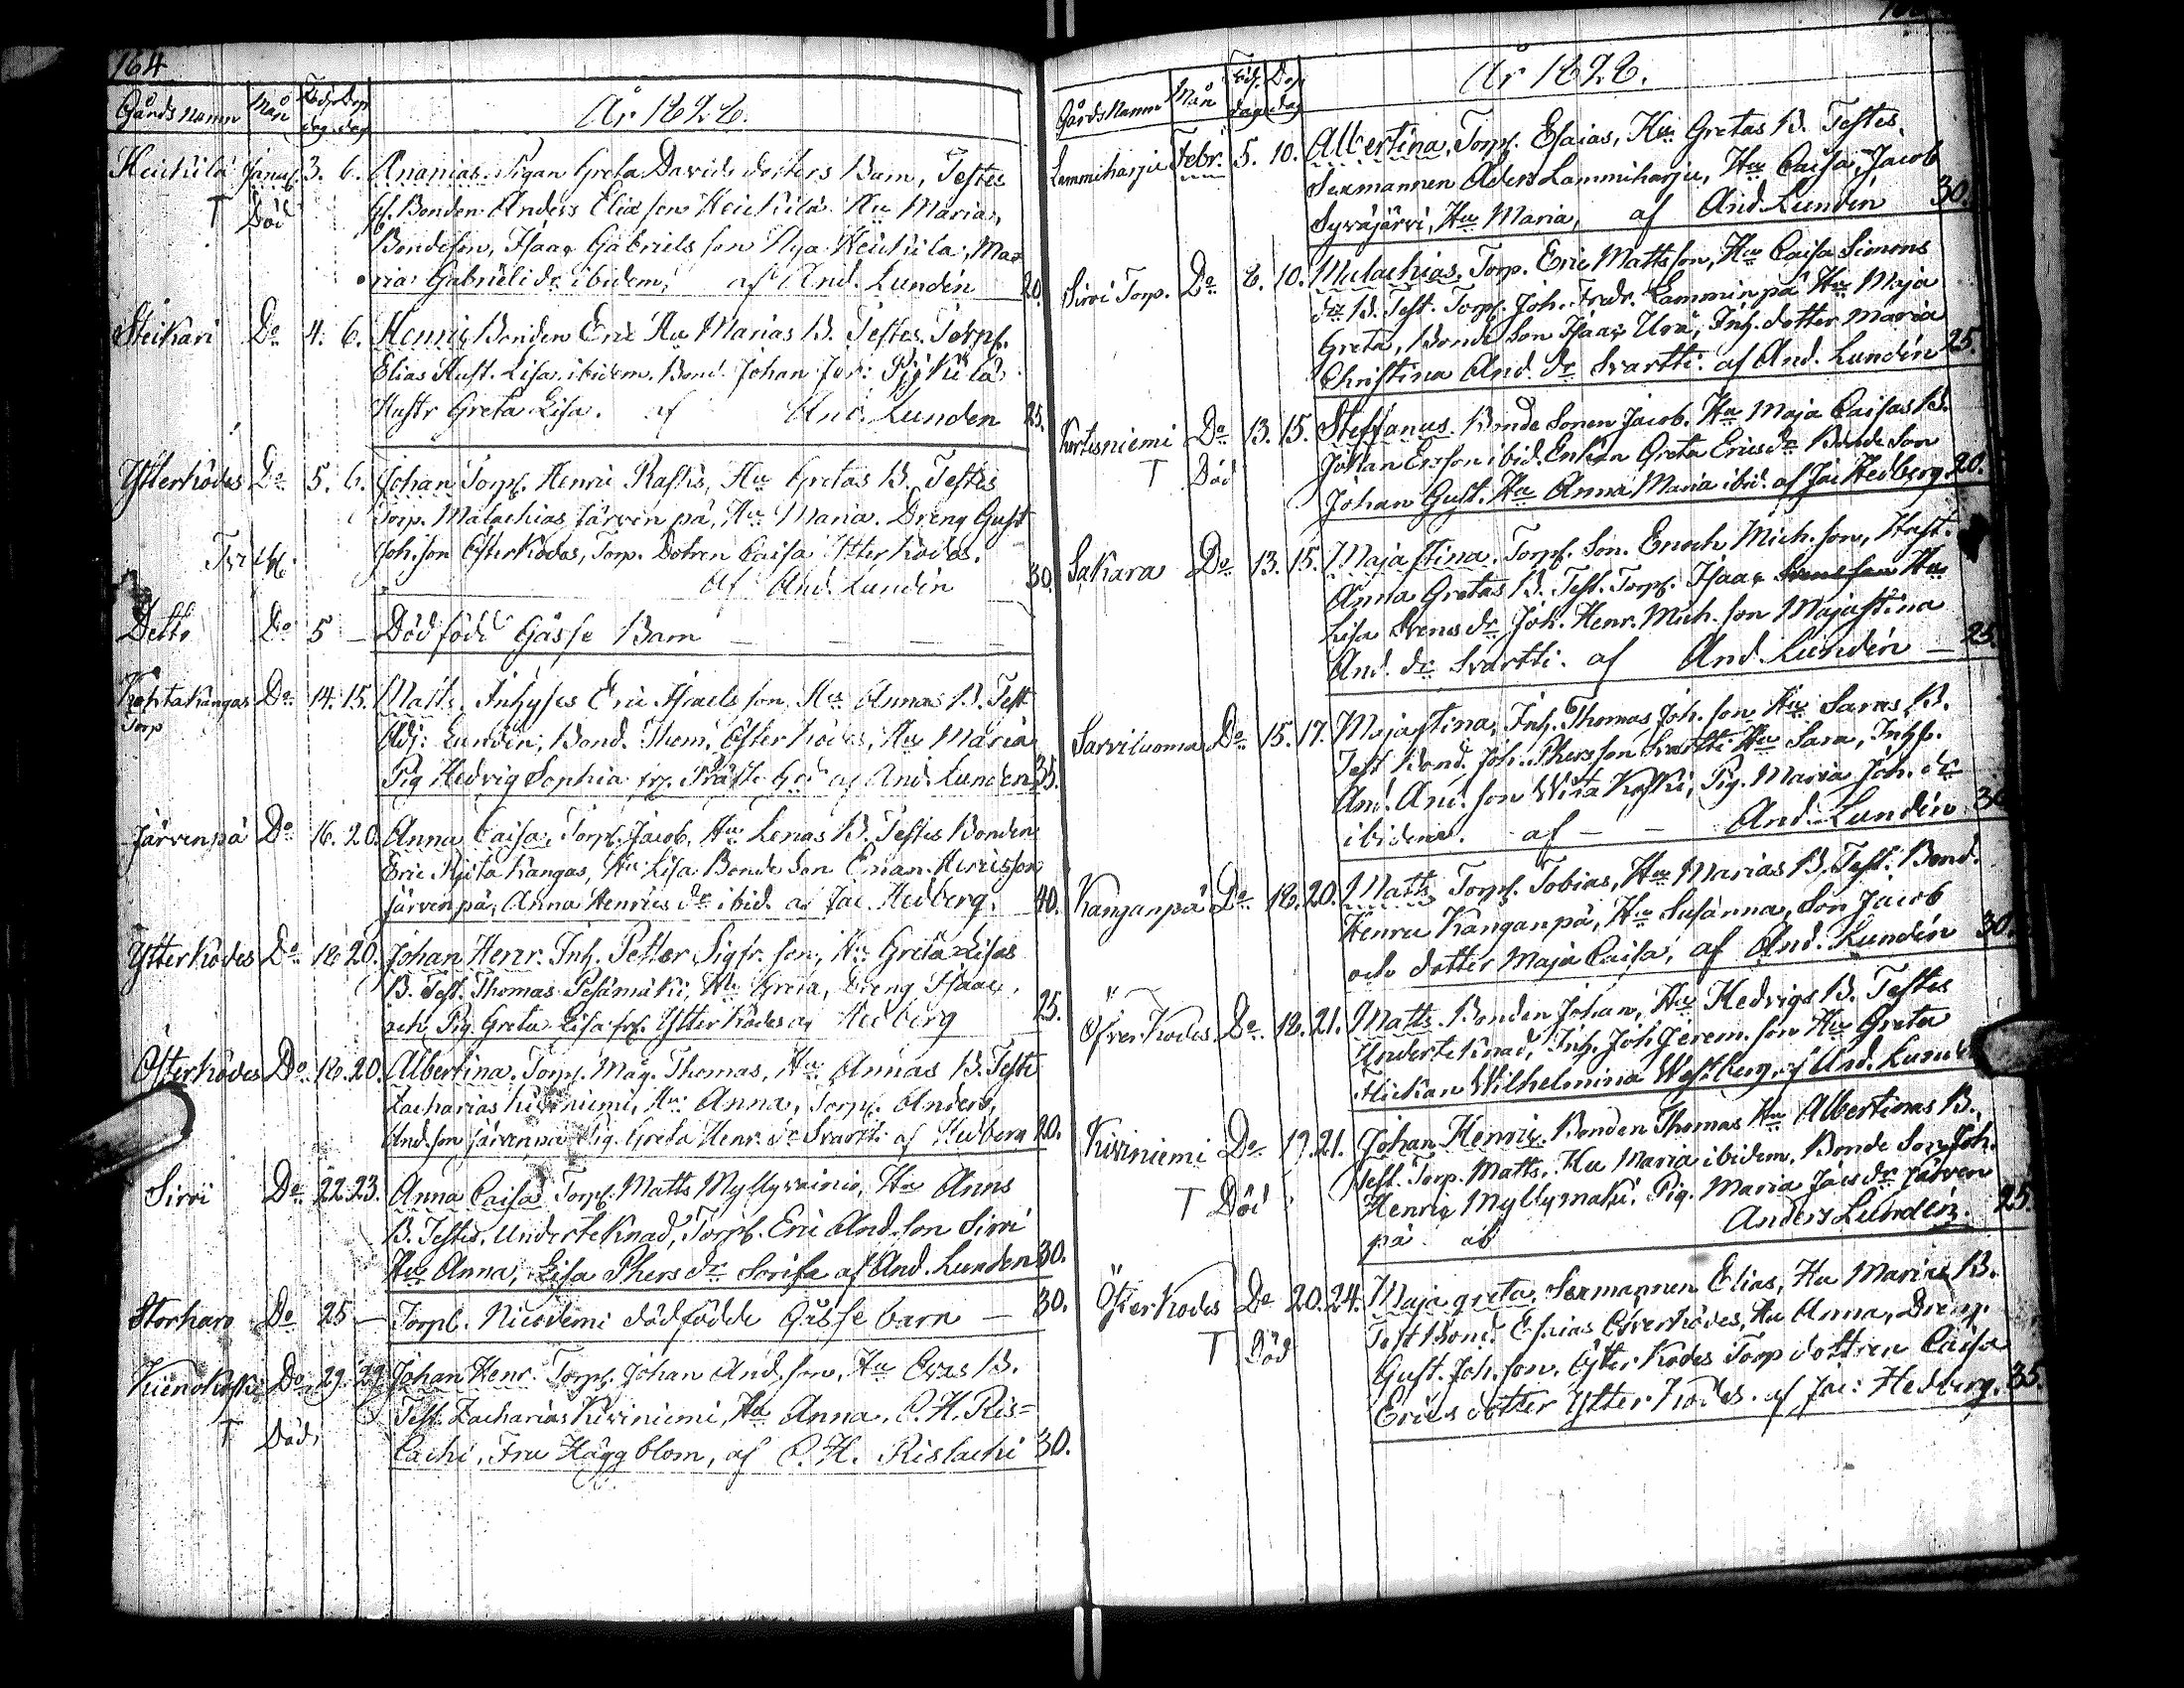 164
Gårds Namn Mån Föd. dag Dop dag År 1828.
Heickilä Januar. 3. 6. Ananias. Pigan Greta Davids doters Barn, Testes
T Död Bonden Anders Elia son Heickilä Hu Maria,
Bondeson, Isaac Gabriels son Nya Heickila, Ma=
ria Gabrieli dr ibidem, af And. Lundén 20.
Steikari Do 4. 6. Henric Bonden Eric Hu Marias B. Testes. Torp.
Elias Hust. Lisa ibidem. Bond. Johan
Hustr Greta Lisa. af And. Lunden 25.
Ytterkodes Do 5. 6. Johan Torp. Henric Hu Gretas B. Testes
Torp. Malachias Järvenpä, Hu Maria. Dreng Gust
Joh. son Österkodes, Torp. Dotren Caisa Ytterkodes.
af And. Lundén 30.
Detto Do 5 – Dödfödt Gåsse Barn – – –
Torp
Do 14. 15. Matts. Inhyses Eric Israels son, Hu Annas B. Test
Adj: Lundén, Bond. Thom. Österkodes, Hu Maria
Pig Hedvig Sophia af And. Lunden 35.
Järvenpä Do 16. 20. Anna Caisa, Torp. Jacob, Hu Lenas B. Testes Bonden
Eric Hu Lisa Bonde Son Eman. Henricsson
Järvenpä, Anna Henrics dr ibid. af Jac. Hedberg. 40.
Ytterkodes Do 18 20. Johan Henr. Inh. Petter Sigfr. son, Hu Greta Lisas
B. Test. Thomas Pesämäki, Hu Greta, Dreng Isaac,
och Pig. Greta Lisa Ytterkodes af Hedberg 25.
Österkodes Do 18. 20. Albertina. Torp. Mäg. Thomas, Hu Annas B. Teste
Zacharias Kiviniemi, Hu Anna, Torp. Anders,
And. son Järvenpä Pig. Greta Henr. dr Svartti af Hedberg 20.
Sirvi Do 22. 23. Anna Caisa Torp. Matts Myllyvainio, Hu Anns
B. Testes. Underteknad, Torp. Eric And. son Sirvi
Hu Anna, Lisa Phers dr af And. Lunden 30.
Storharo Do 25 – Torp. Nicodemi dödfödde Gåsse barn – 30.
Do 29. 29. Johan Henr. Torp. Johan And. son, Hu Evas B.
T Död. Test. Zacharias Kiviniemi, Hu Anna, C. H. Ris=
lachi, Fru Häggblom, af C. H. Rislachi 30.
Gårds Namn Mån Föd. dag Dop dag År 1828.
Lammiharju Febr. 5. 10. Albertina, Torp. Esaias, Hu Gretas B. Testes,
Sexmannen Aders Lammiharju, Hu Caisa, Jacob
Syväjärvi, Hu Maria, af And. Lundén 30.
Sirvi Torp. Do 8. 10. Malachias. Torp. Eric Matts son, Hu Caisa Simons
dr B. Test. Torp. Joh. Fredr. Lamminpä Hu Maja
Greta, Bonde Son Isaac Inh. dotter Maria
Christina And. dr Svartti. af And. Lundén 25.
Kortesniemi Do 13. 15. Steffanus. Bonde Sonen Jacob. Hu Maja Caisas B.
T Död Johan Ersson ibid. Enkan Greta Erics dr Bonde Son
Johan Gust. Hu Anna Maria ibid. af Jac Hedberg. 20.
Sakara Do 13. 15. Majastina. Torp. Son. Enoch Mich. son, Hust.
Anna Gretas B. Test. Torp. Isaac Svensson Hu
Lisa Svens dr, Joh. Henr. Mich. son Majastina
And. dr Svartti. af And. Lundén – 25.
Sarviluoma Do 15. 17. Majastina, Inh. Thomas Joh. son Hu Saras B.
Test Bond. Joh. Phersson Svartti Hu Sara, Inh.
And. And. son Wita Koski, Pig. Maria Joh. dr
ibidem. af – – And. Lundén. 30
Kanganpä Do 18. 20. Matts Torp. Tobias, Hu Marias B. Test. Bond.
Henric Kanganpä, Hu Susanna, Son Jacob
och dotter Maja Caisa, af And. Lundén 30.
Öfver Kodes Do 18. 21. Matts. Bonden Johan, Hu Hedvigs B. Testes
Underteknad, Inh. Joh Jerem. son Hu Greta
Flickan Wilhelmina Westberg, af And. Lundén
Kiviniemi Do 19. 21. Johan Henric. Bonden Thomas Hu Albertinas B.
Test. Torp. Matts. Hu Maria ibidem. Bonde Son Joh.
T Död Henric Myllymäki. Pig. Maria Jacs dr Järven
pä af Anders Lundén. 25.
Österkodes Do 20. 24. Maja greta. Sexmannen Elias, Hu Marias B.
Test Bond. Esaias Öfverkodes, Hu Anna, Dreng.
T Död Gust. Joh. son. Ytter Kodes Torp dottren Caisa
Erics dotter Ytter Kodes. af Jac: Hedberg. 35.